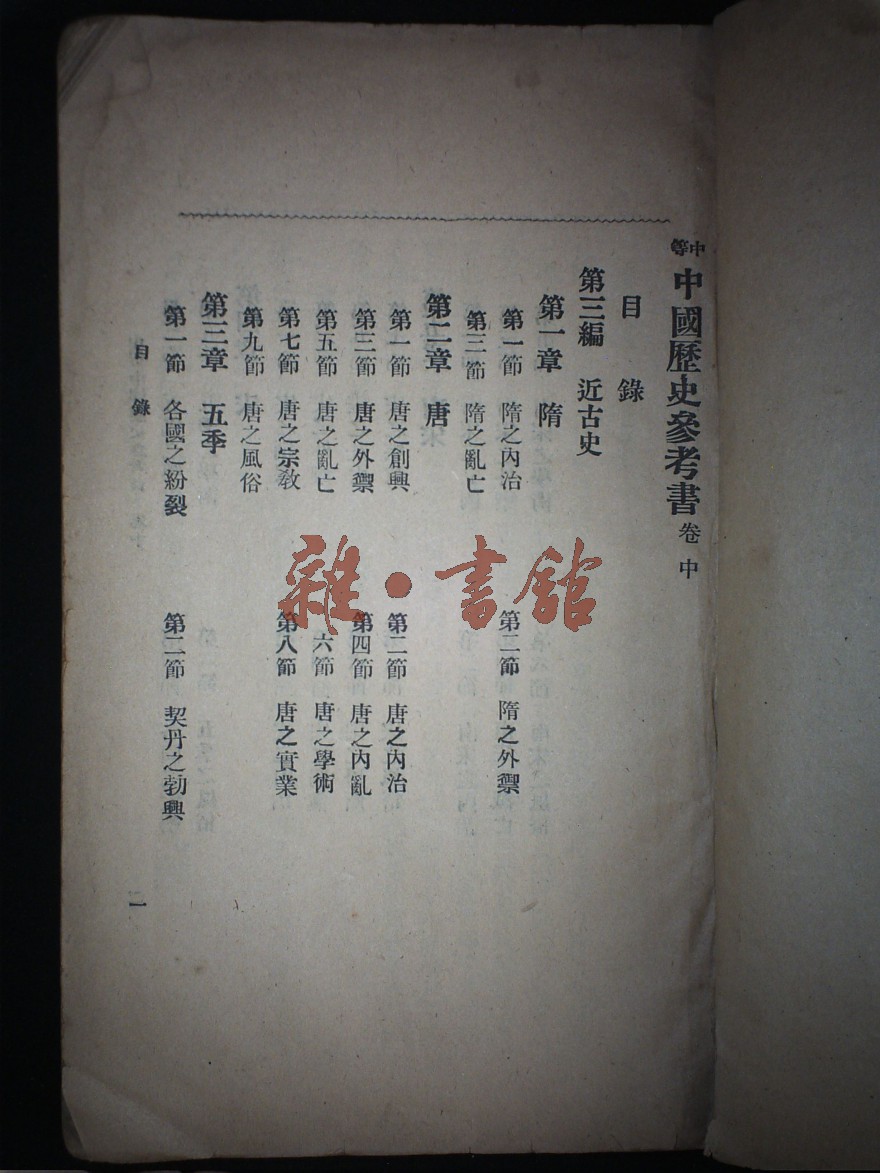 中等中國歷史參考書 卷中
目錄
第三編 近古史
第一章 隋
第一節 隋之內治 第二節 隋之外禦
第三節 隋之亂亡
第二章 唐
第一節 唐之創興 第二節 唐之內治
第三節 唐之外禦 第四節 唐之內亂
第五節 唐之亂亡 六節 唐之學術
第七節 唐之宗教 第八節 唐之實業
第九節 唐之風俗
第三章 五季
第一節 各國之紛裂 第二節 契丹之勃興
目錄 一
雜·書館